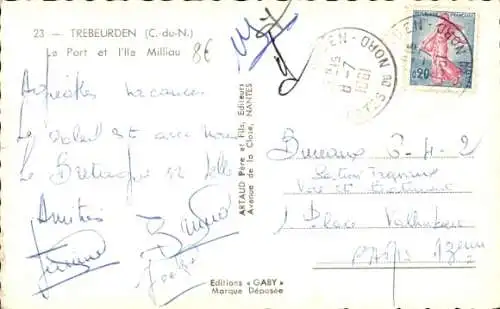 23 — TREBEURDEN (C.-du-N.)
Le Port et l'Ile Milliau
8€
Agréables vacances
Le soleil est avec nous
La Bretagne est belle
Amitiés
ARTAUD Père et Fils, Editeurs
Avenue de la Close, NANTES
Editions « GABY »
Marque Déposée
8-7
1961
CÔTES DU NORD
0,20
Bureaux 3-4-2
Section Travaux
Voie et
1 Place Valhubert
PARIS 13ème